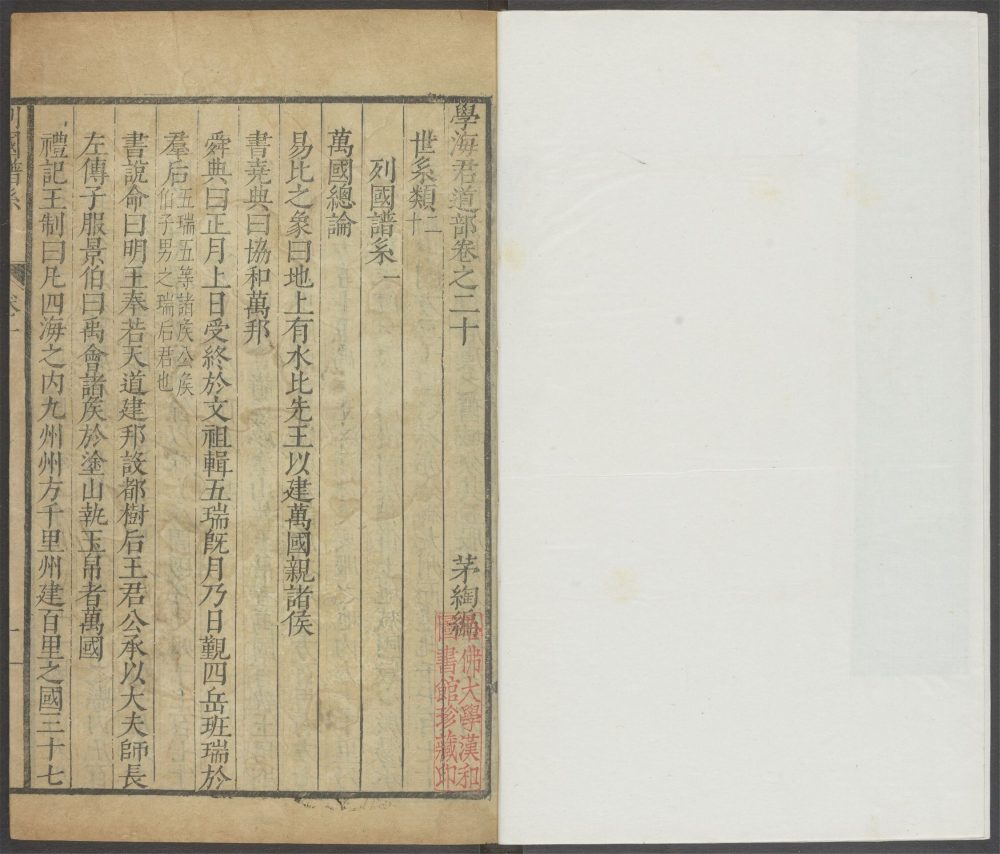 學海君道部卷之二十 茅綯編
世系類二十
列國譜系一
萬國總論
易比之象曰地上有水比先王以建萬國親諸侯
書堯典曰協和萬邦
舜典曰正月上日受終於文祖輯五瑞旣月乃日覲四岳班瑞於
羣后五瑞五等諸矦公矦伯子男之瑞后君也
書說命曰明王奉若天道建邦設都樹后王君公承以大夫師長
左傳子服景伯曰禹會諸矦於塗山執玉帛者萬國
禮記王制曰凡四海之内九州州方千里州建百里之國三十七
列國譜系
佛大學漢和
圖書館珍藏印